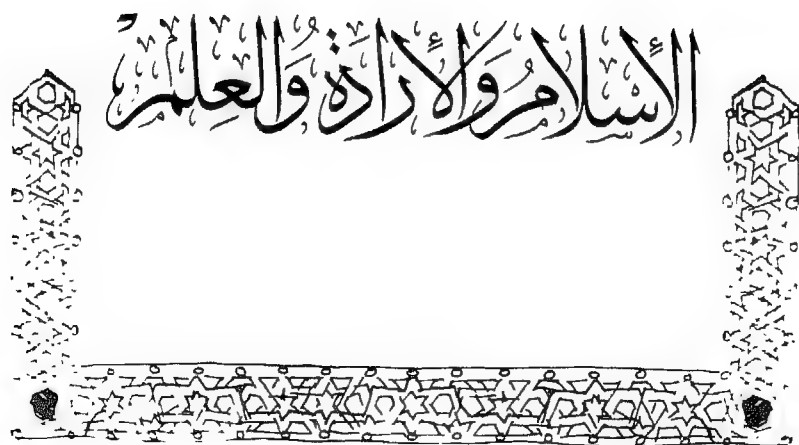 الإسْلامُ وَالأرَادَةُ وَالعِلمْ